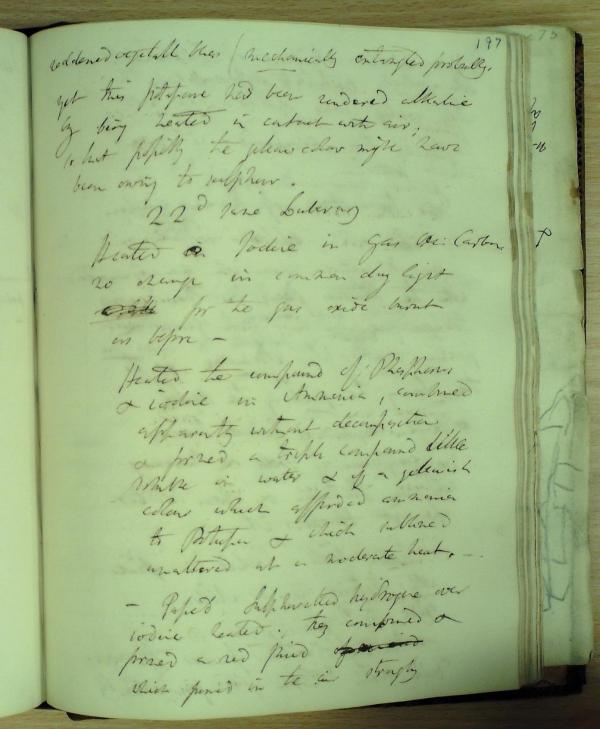 197
reddened vegetable blues (mechanically entangled probably.
yet this potassium had been rendered alkaline
by being heated in contact with air;
so that possibly the yellow colour might have
been owing to sulphur.
22d June
Heated Iodine in Gas Ox: Carbone
no change in common day light
for the gas oxide burnt
as before –
Heated the compound of Phosphorus
& iodine in Ammonia, combined
apparently without decomposition
& formed a triple compound little
soluble in water & of a yellowish
colour which afforded ammonia
to Potash & which sublimed
unaltered at a moderate heat. –
– Passed Sulphuretted hydrogene over
iodine heated; they combined &
formed a red fluid
which fumed in the air strongly